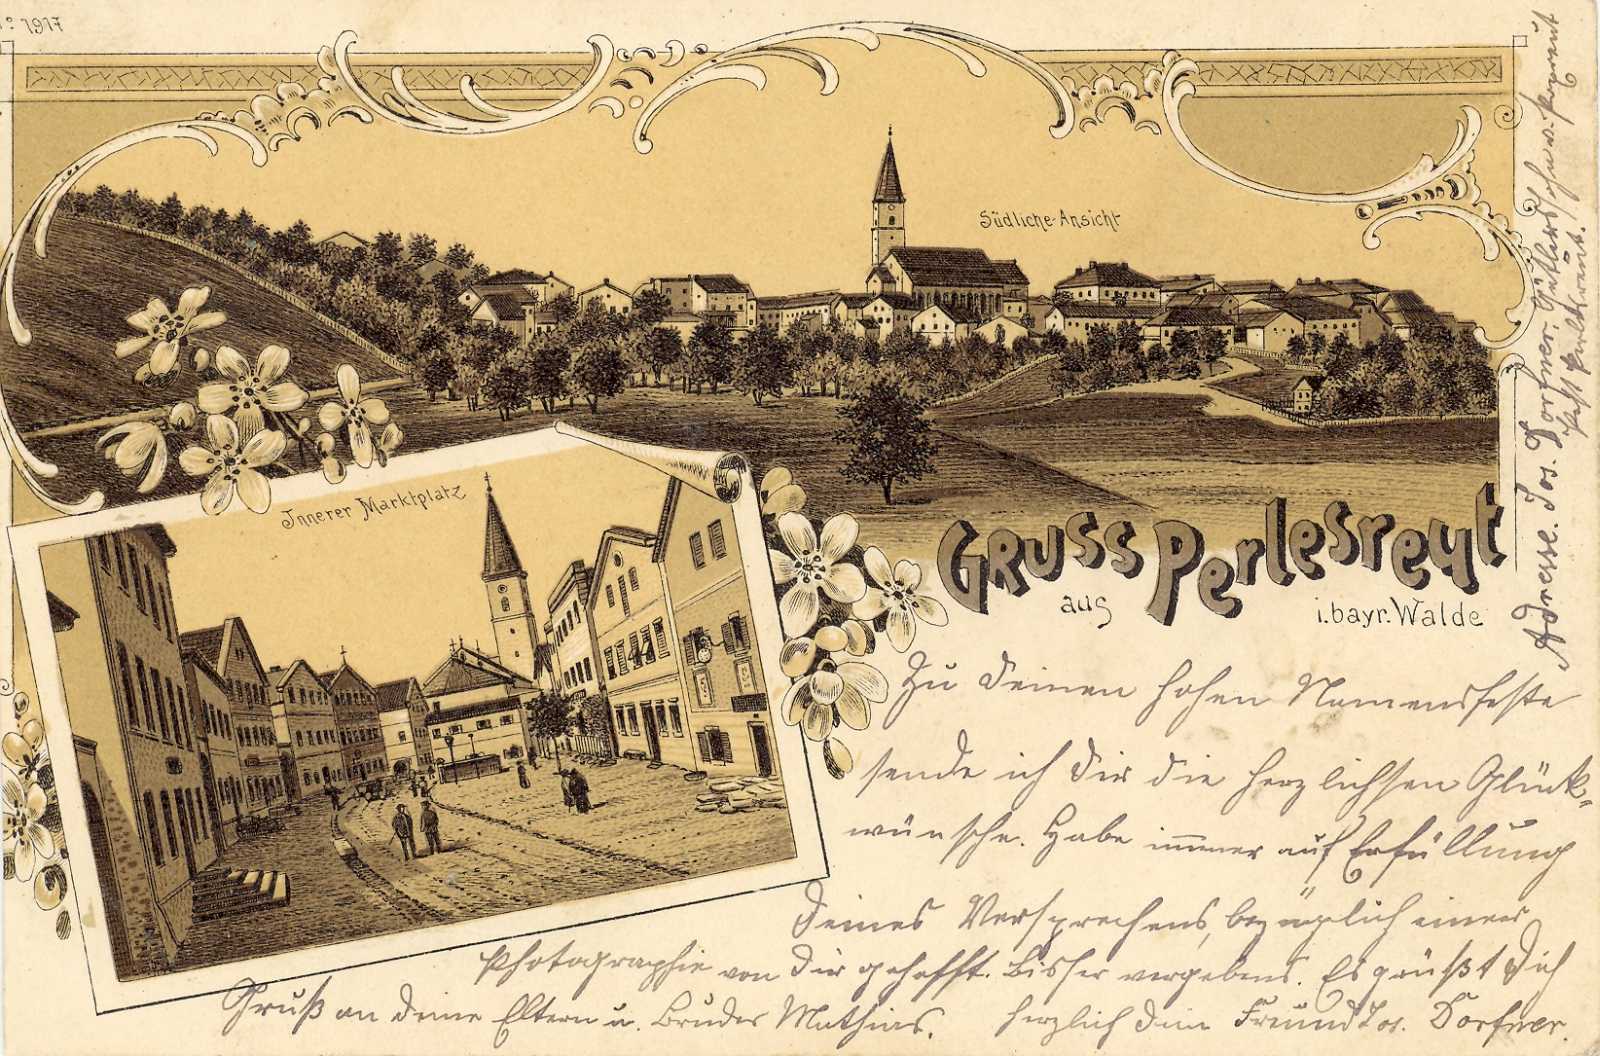 1917
Südliche-Ansicht
Innerer Marktplatz
Gruss
aus
Perlesreut
i. bayr. Walde
Zu Deinem hohen Namensfeste
sende ich Dir die herzlichsten Glück-
wünsche. Habe immer auf Erfüllung
Deines Versprechens, bezüglich einer
Photographie von Dir gehofft. Bisher vergebens. Es grüßt Dich
herzlich dein Freund Jos. Dorfner.
Gruß an deine Eltern u. Bruder Mathias.
Adresse. Jos. Dorfner. Gütlerssohn v.
Post Perlesreut.